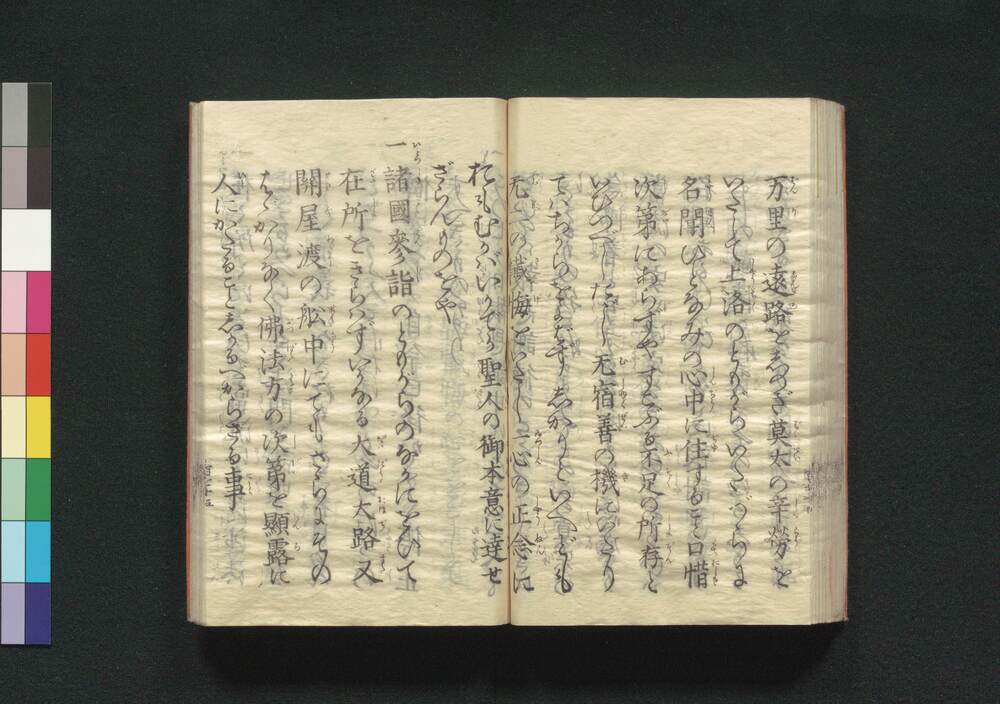 万里の遠路をしのぎ莫太の辛労を
いたして上洛のともがらいたづらに
名聞ひとなみの心中に住すること口惜
次第にあらずやすこぶる不足の所存と
いひつべしたゞし无宿善の機にいたり
てはちからをよばずしかりといへども
无二の懴悔をいたし一心の正念に
おもむかばいかでか聖人の御本意に達せ
ざらんものをや
一諸國參詣のともがらのなかにをひて
在所をきらはずいかなる大道大路又
關屋渡の舩中にてもさらにその
はゞかりなく佛法方の次第を顯露に
人にかたることしかるべからざる事